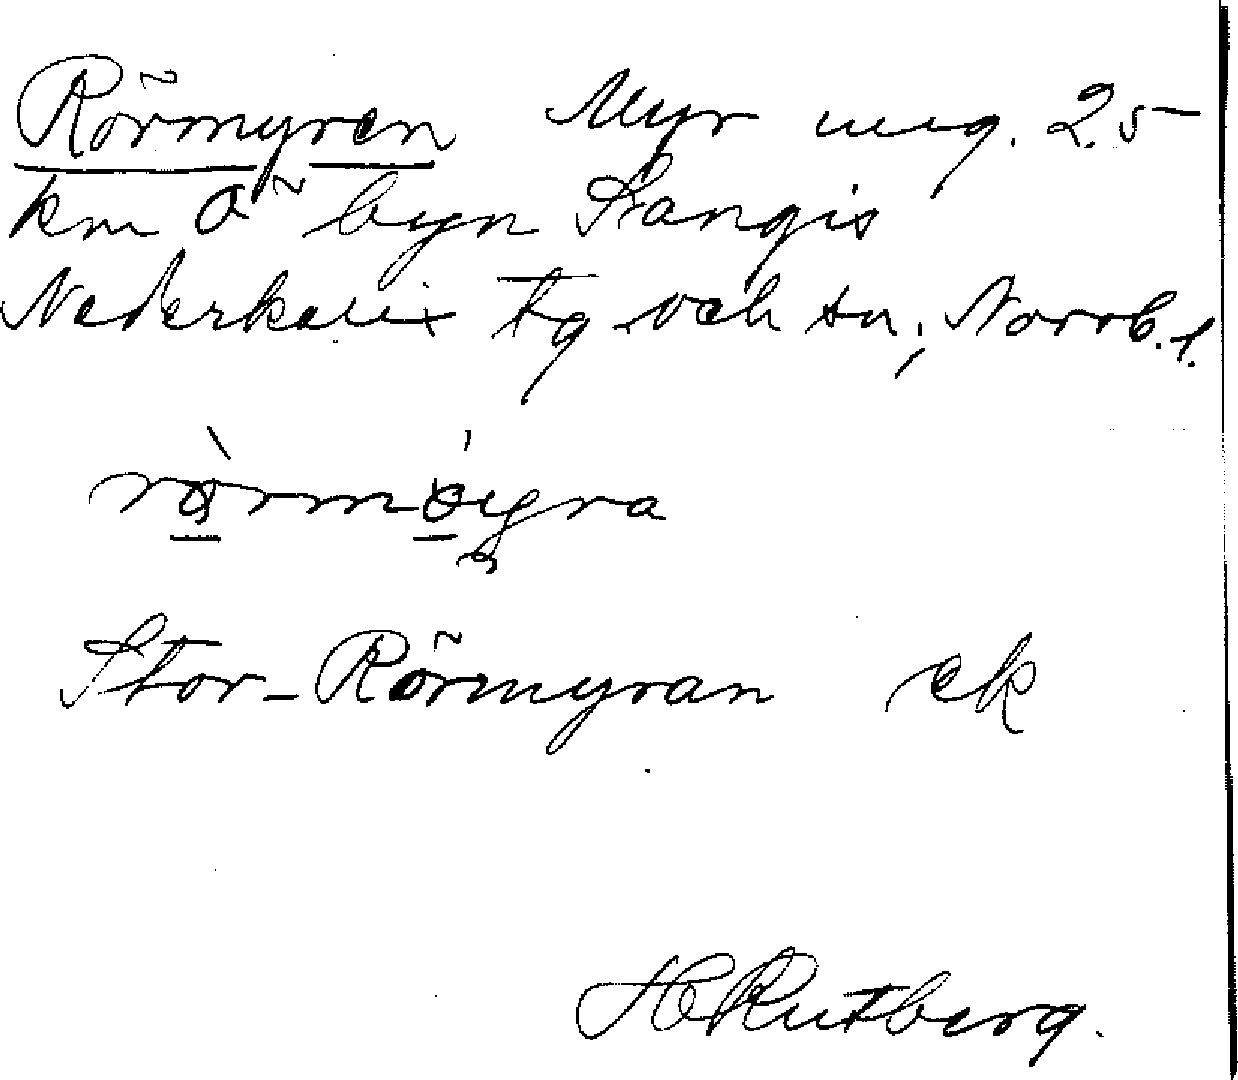 Rörmyren Myr ung. 2.5
km Ö byn Sangis
Nederkalix tg och sn, Norrb. l.
Stor-Rörmyran ek
H Rutberg.